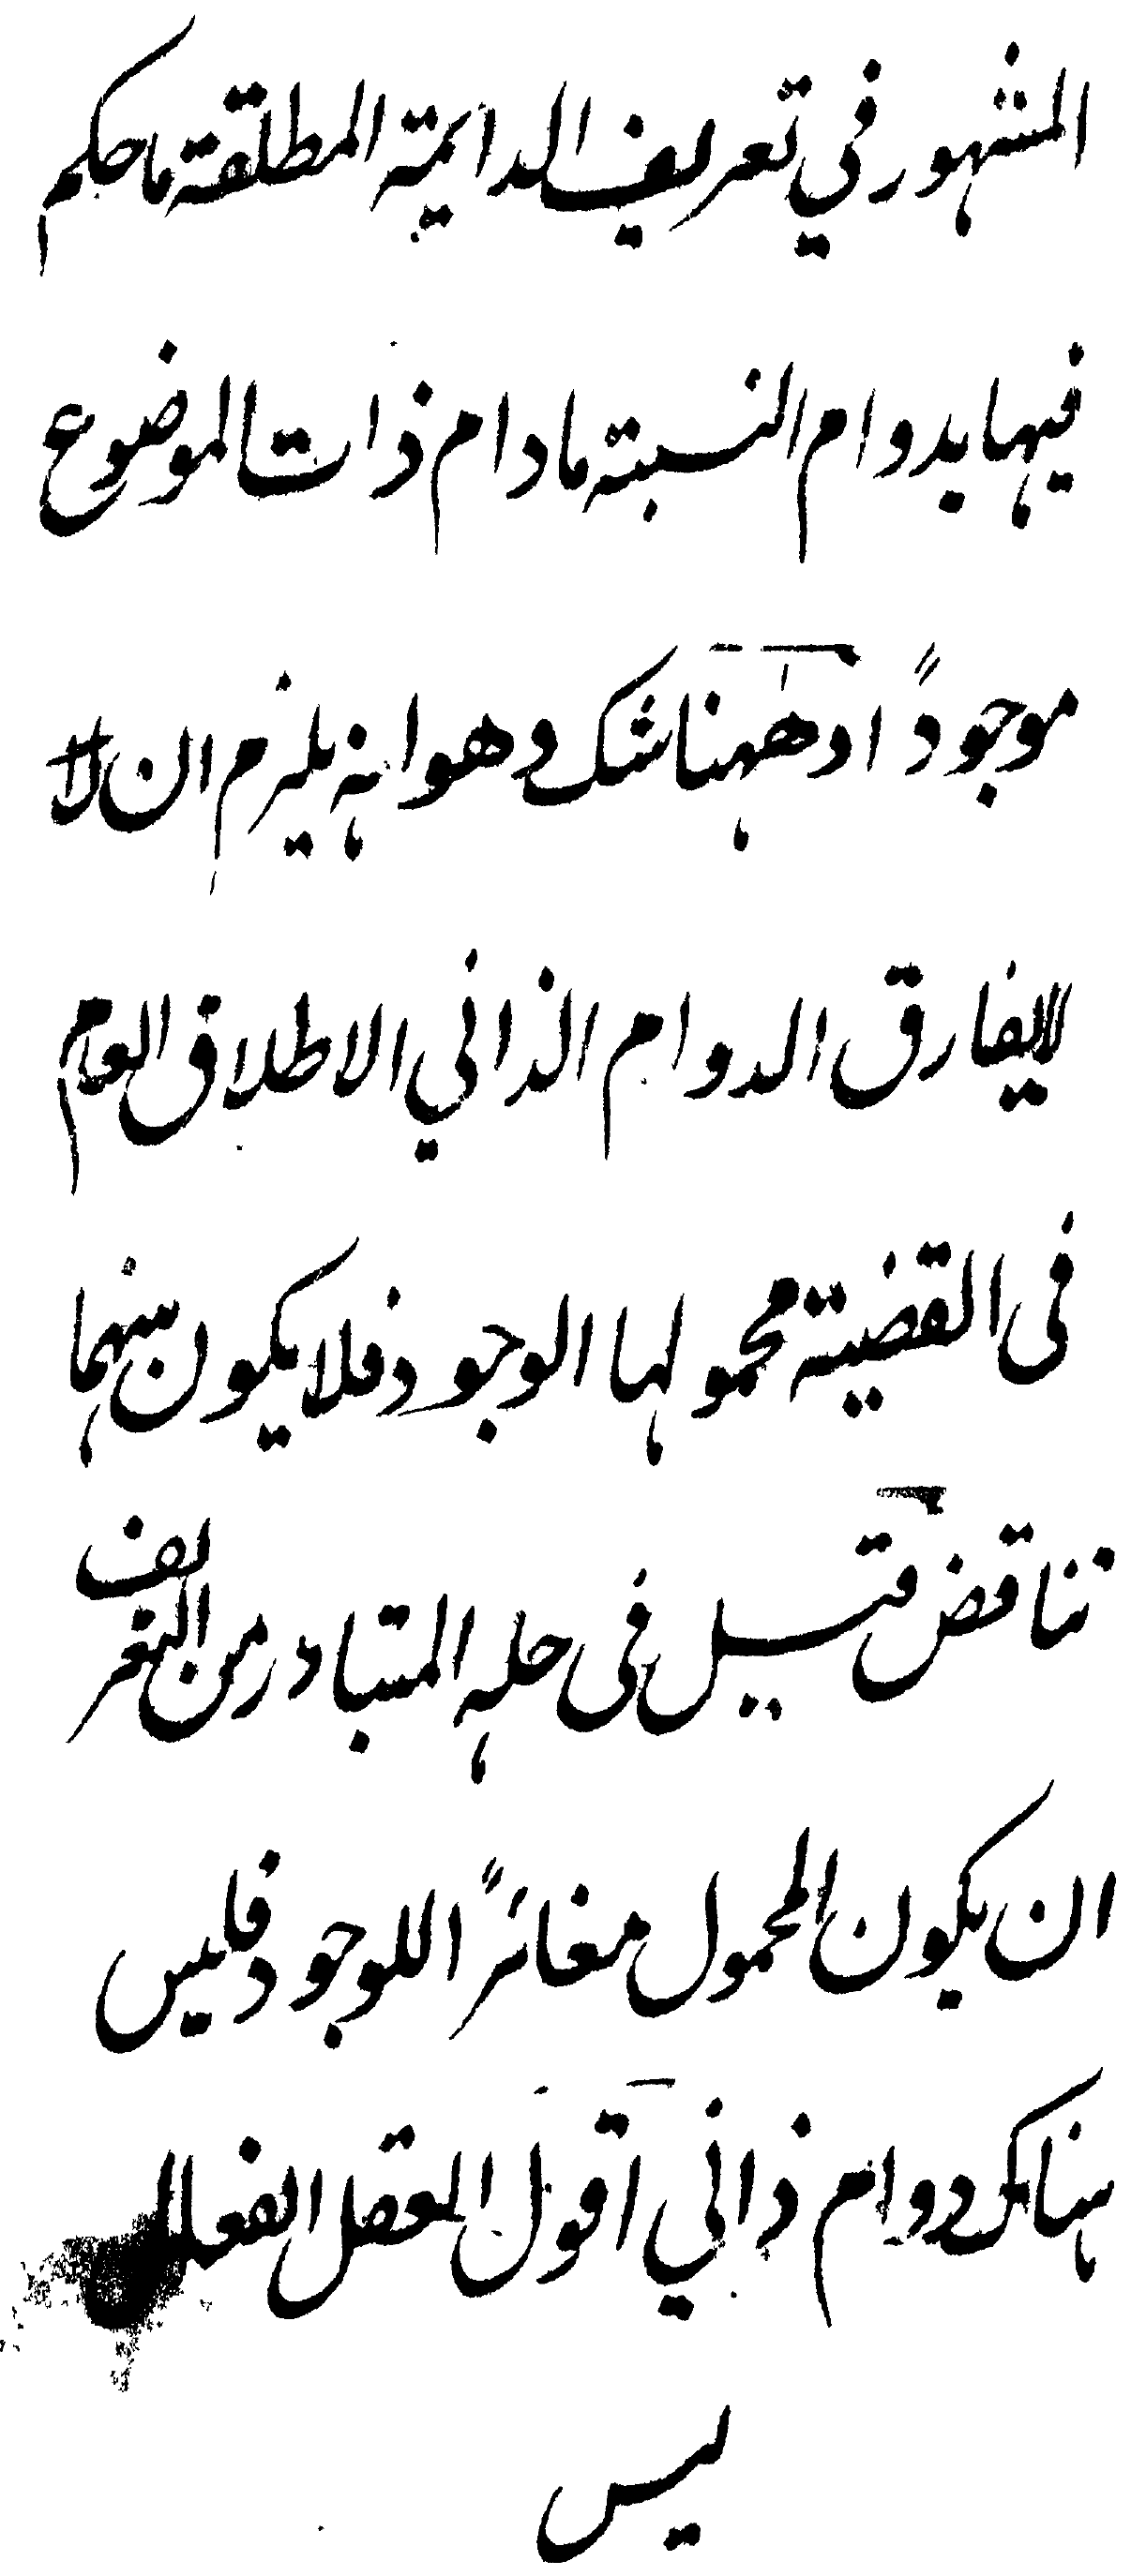 المشهور في تعريف الدايمة المطلقة ما حكم
فيها بدوام النسبة ما دام ذات الموضوع
موجوداً او ههنا شك وهو انه يلزم ان لا
لايفارق الدوام الذاتي الاطلاق العام
فى القضية محمولها الوجود فلا يكون بينهما
تناقض قيل فى حله المتبادر من التعريف
ان يكون المحمول مغائرًا اللوجود فليس
هناك دوام ذاتي اقول العقل الفعال
ليس